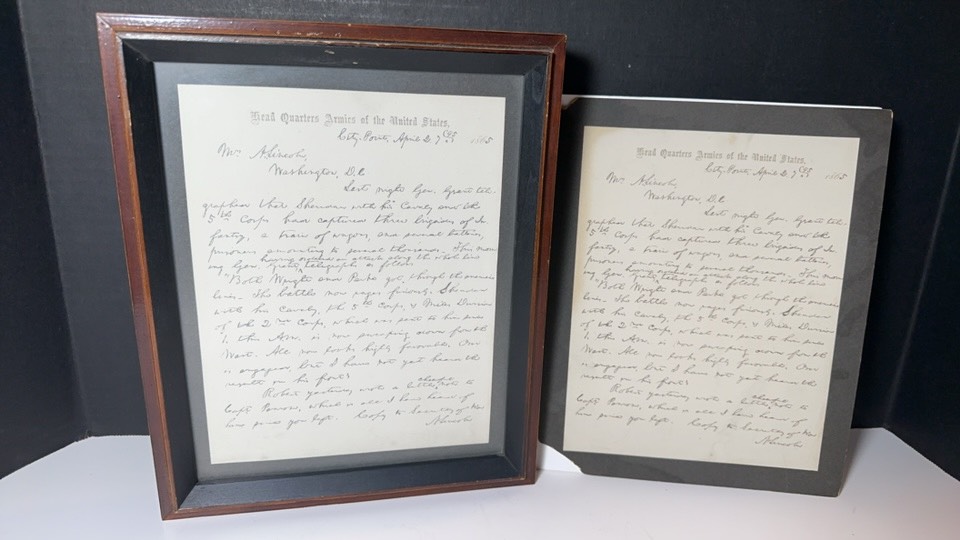 Head Quarters Armies of the United States,
City-Point, April 2. 7 45 1865
Mrs. A. Lincoln,
Washington, D.C.
Last night Gen. Grant tel-
egraphed that Sheridan with his Cavalry and the
5th Corps had captured three brigades of In-
fantry, a train of wagons, and several batteries,
prisoners amounting to several thousands. This morn-
having ordered an attack along the whole line
ing Gen. Grant telegraphs as follows
"Both Wright and Parke got through the enemies
lines. The battle now rages furiously. Sheridan
with his Cavalry, the 5th Corps, & Miles Division
of the 2nd Corps, which was sent to him since
1. this A.M. is now sweeping down from the
West. All now looks highly favorable. Ord
is engaged, but I have not yet heard the
result on his front"
cheerful
Robert yesterday wrote a little note to
Capt. Penrose, which is all I have heard of
him since you left. Copy to Secretary of War
A. Lincoln
Head Quarters Armies of the United States,
City-Point, April 2. 7 45 1865
Mrs. A. Lincoln,
Washington, D.C.
Last night Gen. Grant tel-
egraphed that Sheridan with his Cavalry and the
5th Corps had captured three brigades of In-
fantry, a train of wagons, and several batteries,
prisoners amounting to several thousands. This morn-
having ordered an attack along the whole line
ing Gen. Grant telegraphs as follows
"Both Wright and Parke got through the enemies
lines. The battle now rages furiously. Sheridan
with his Cavalry, the 5th Corps, & Miles Division
of the 2nd Corps, which was sent to him since
1. this A.M. is now sweeping down from the
West. All now looks highly favorable. Ord
is engaged, but I have not yet heard the
result on his front"
cheerful
Robert yesterday wrote a little note to
Capt. Penrose, which is all I have heard of
him since you left. Copy to Secretary of War
A. Lincoln